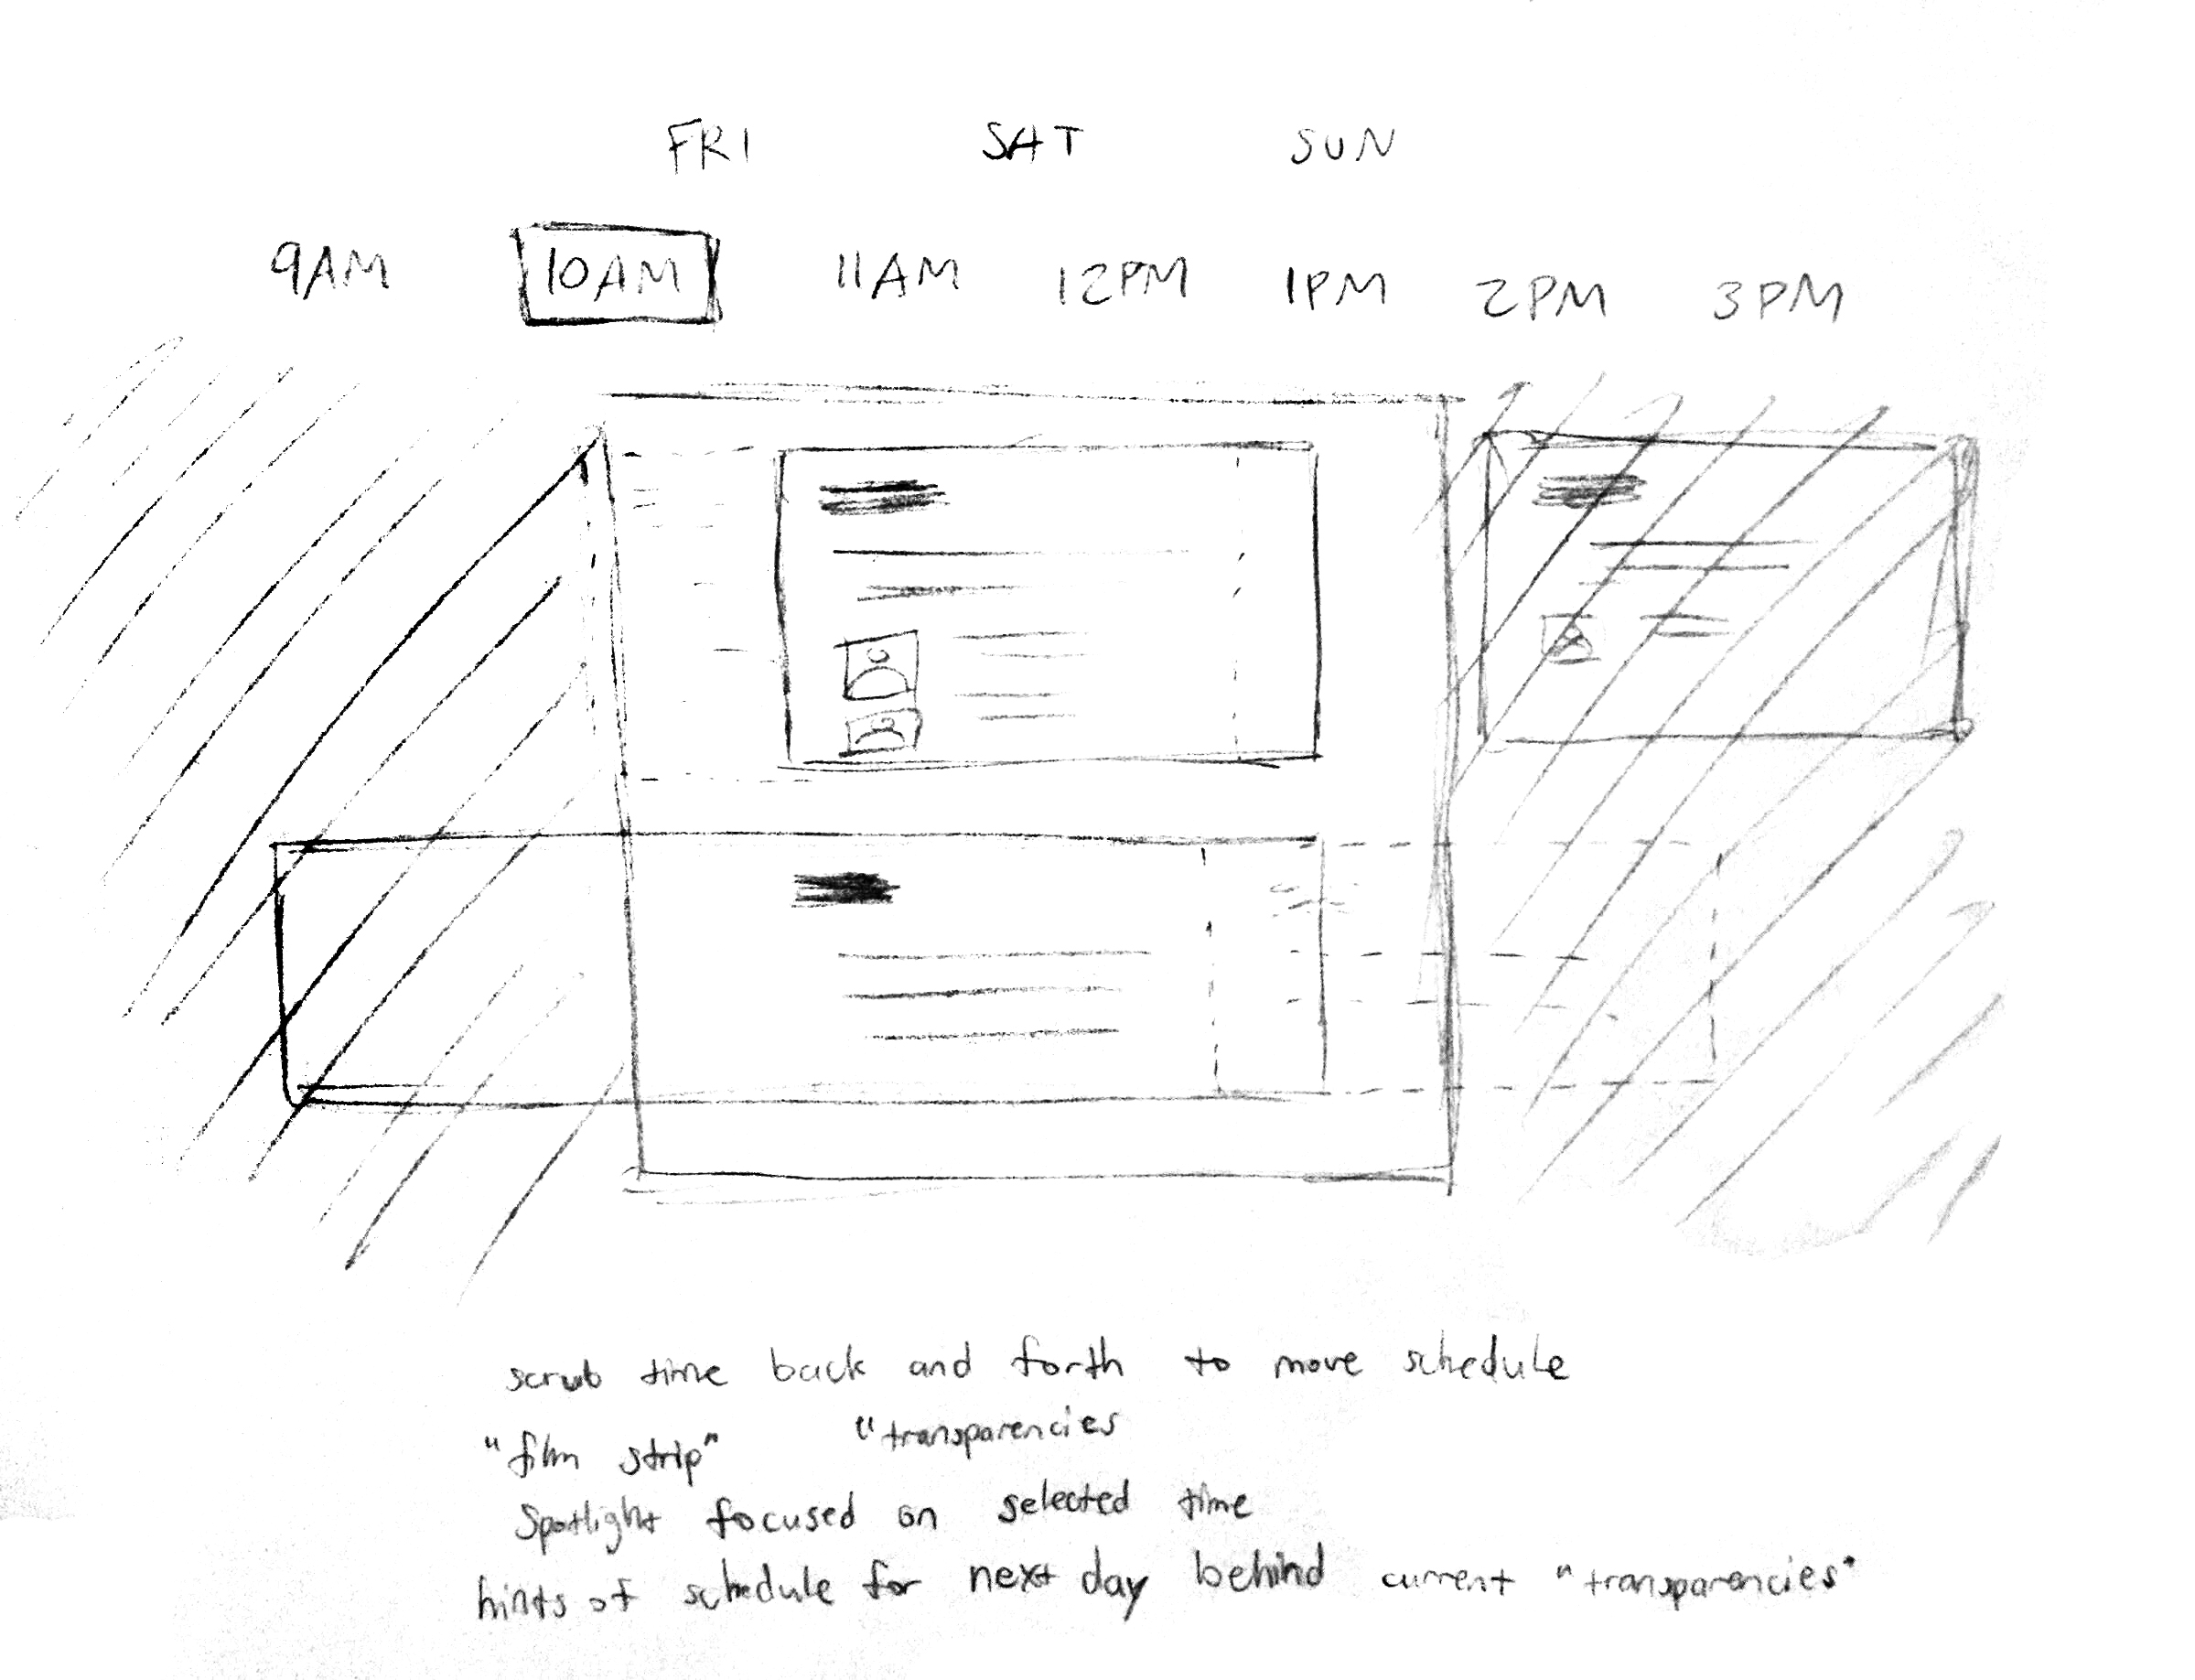 FRI SAT SUN
9AM 10AM 11AM 12PM 1PM 2PM 3PM
scrub time back and forth to move schedule
"film strip" "transparencies
Spotlight focused on selected time
hints of schedule for next day behind current "transparencies"